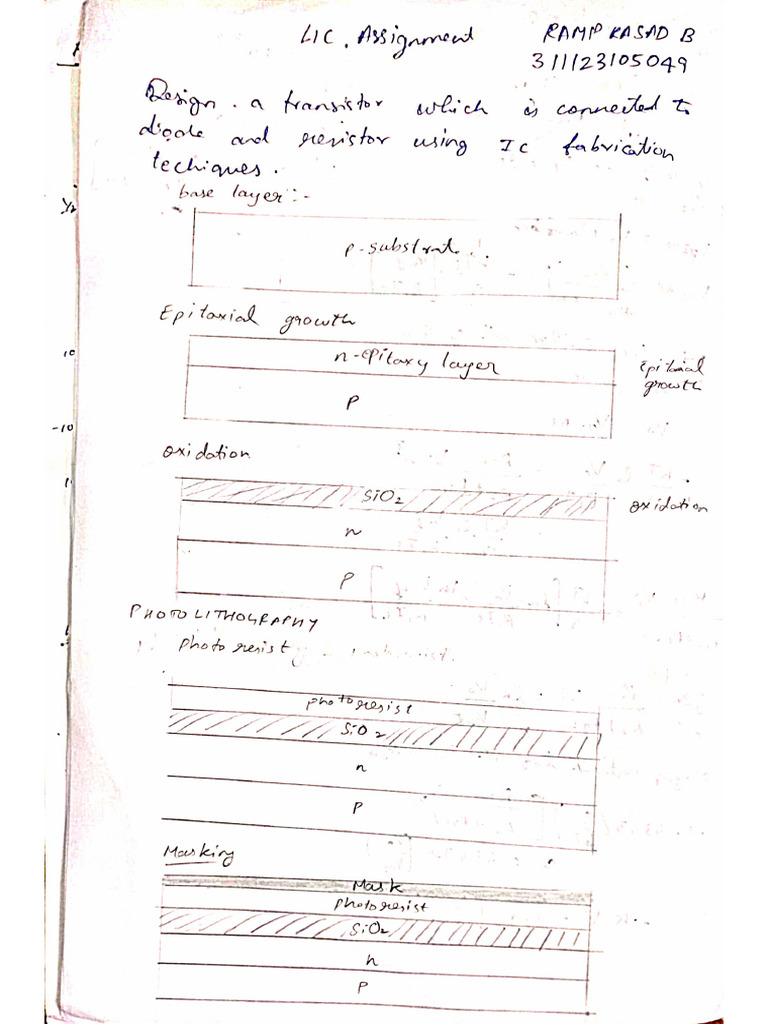 LIC. Assignment RAMPRASAD B
311123105049
Design. a transistor which is connected to
diode and resistor using Ic fabrication
techiques.
base layer:-
p-substrate..
Epitaxial growth
n-epitaxy layer
Epitaxial
growth
P
oxidation
SiO2
oxidation
n
P
PHOTOLITHOGRAPHY
photo resist
photoresist
SiO2
n
P
Masking
Mask
photoresist
SiO2
n
P
10
-10